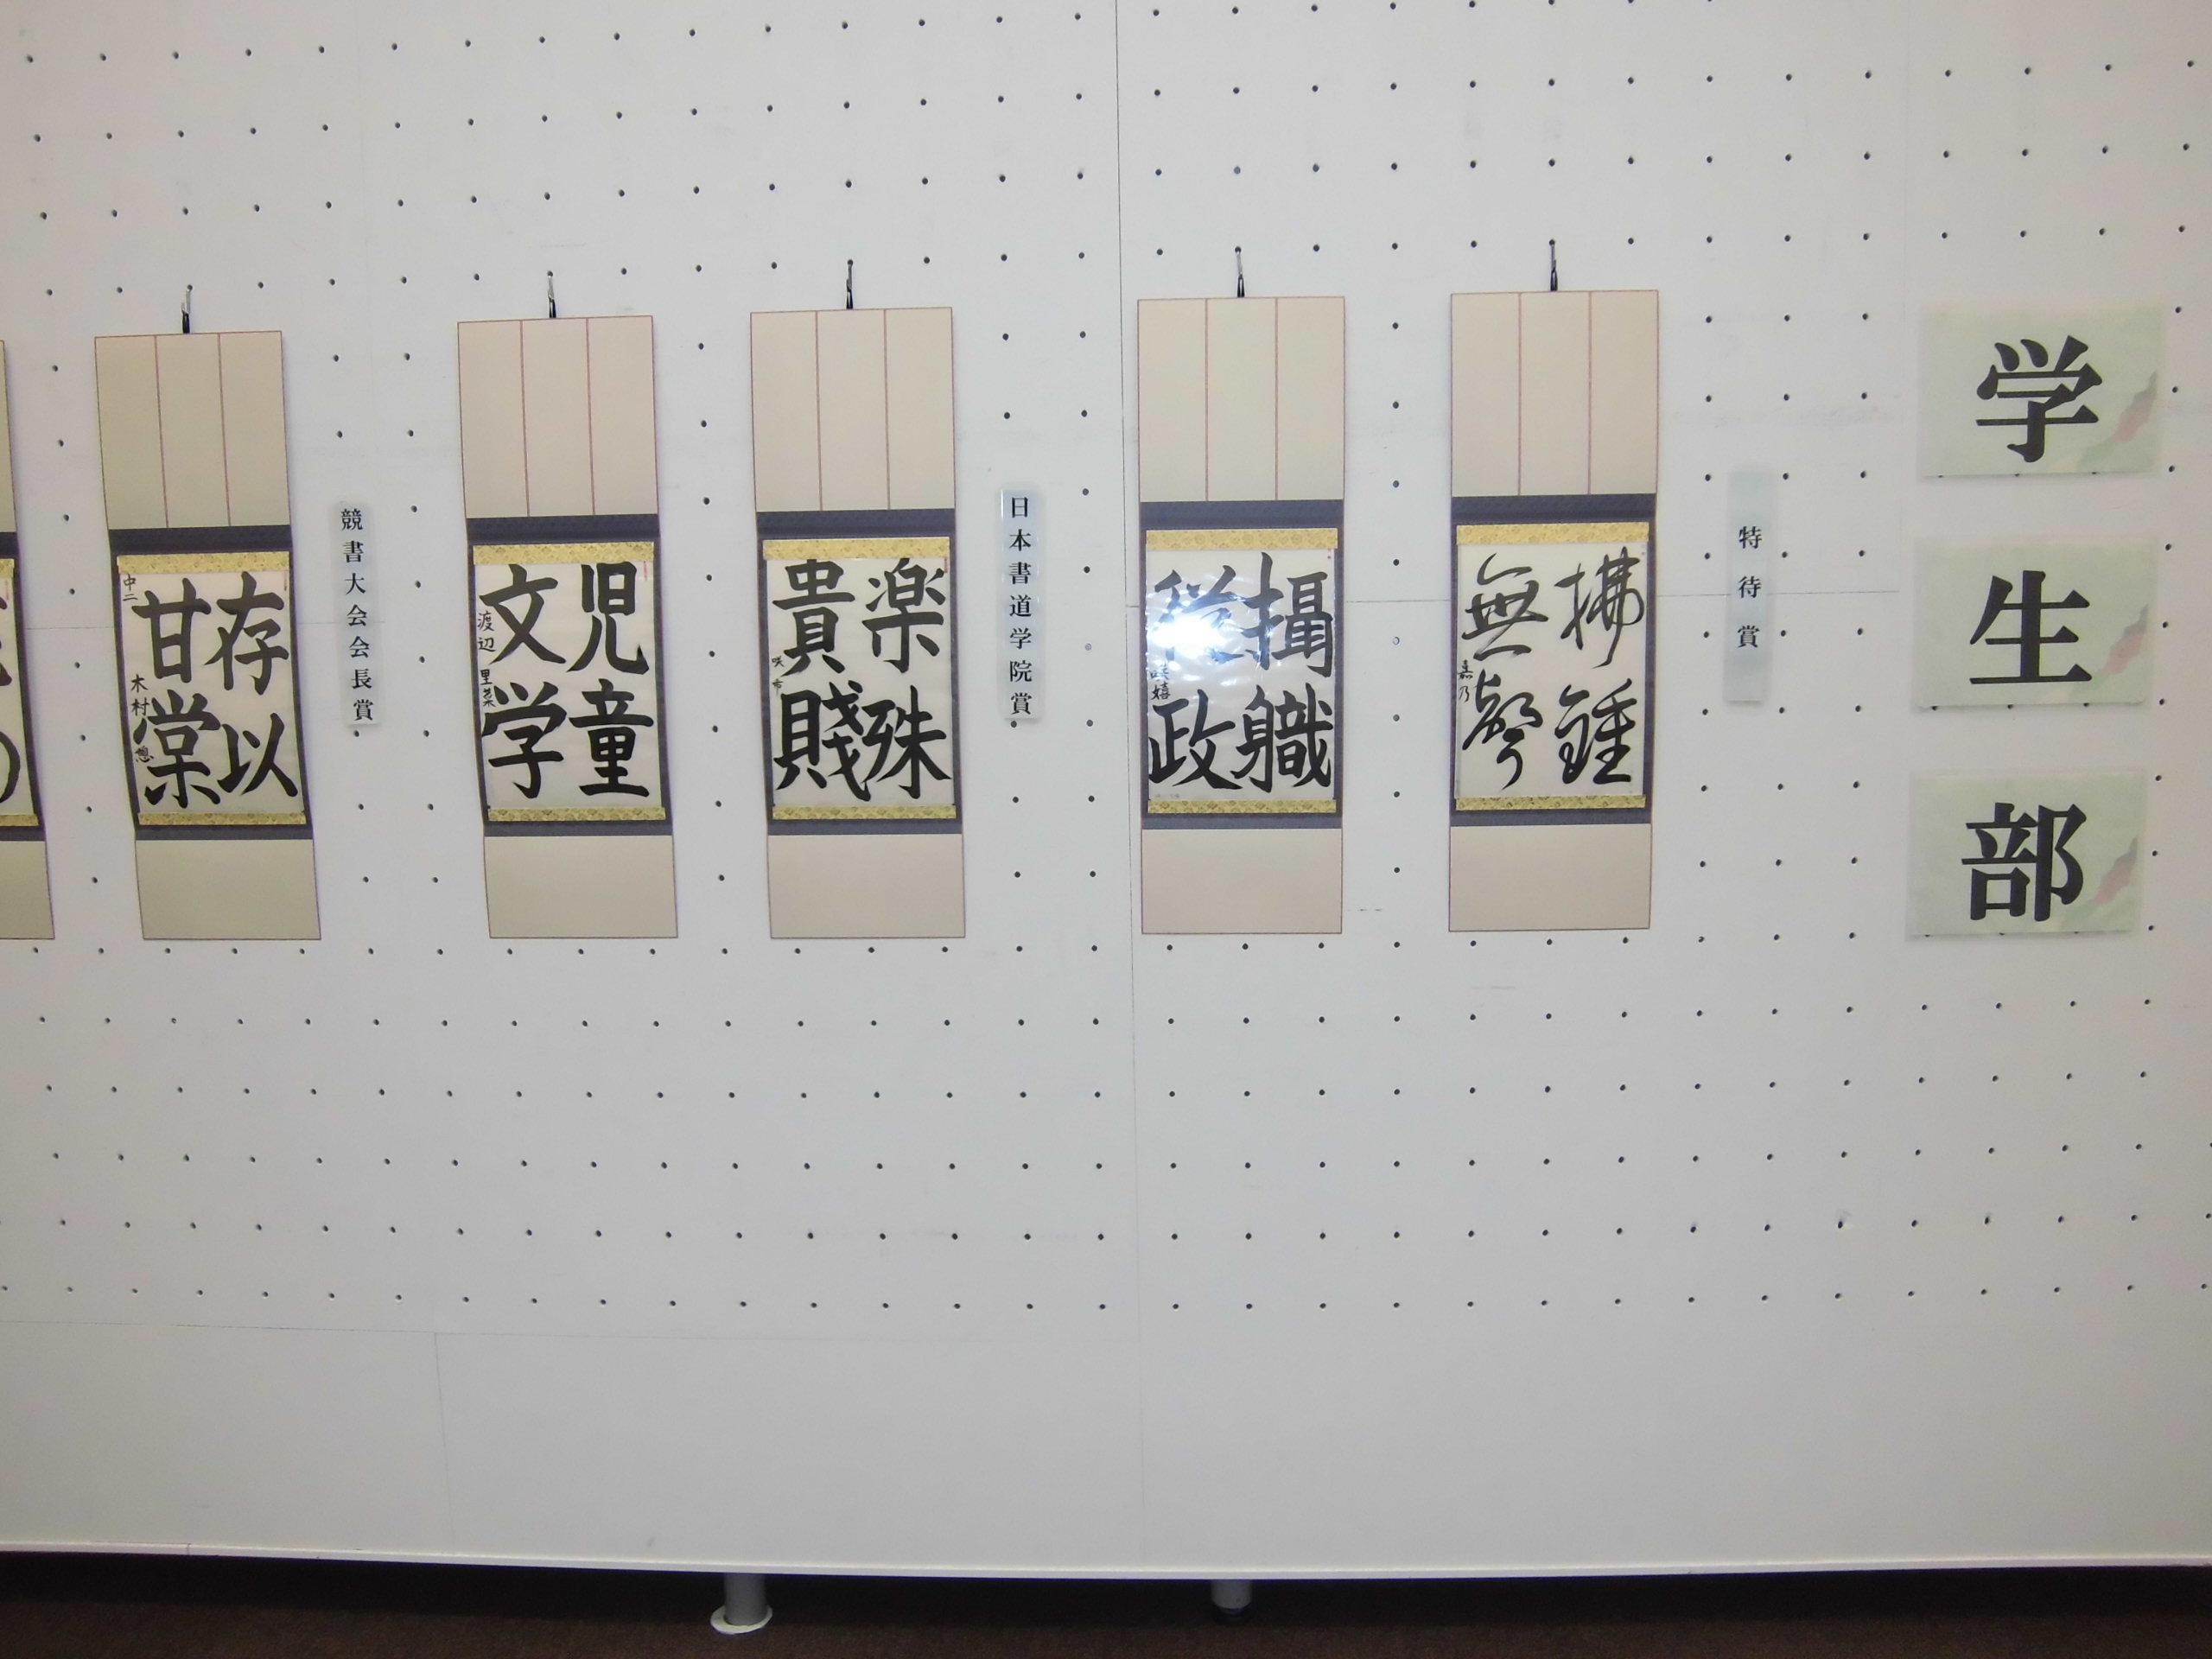 学生部
特待賞
拂鍾
無聲
嘉乃
攝職
從政
日本書道学院賞
楽殊
貴賤
児童
文学
渡辺 里菜
競書大会会長賞
存以
甘棠
中二 木村